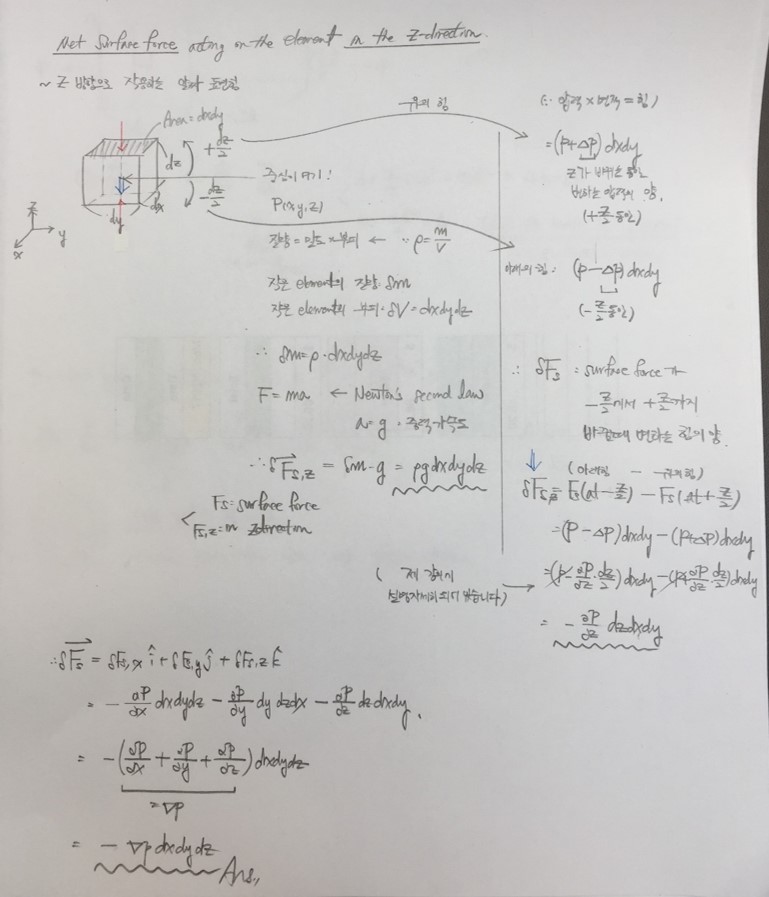 Net Surface force acting on the element in the z-direction.
~ z 방향으로 작용하는 알짜 표면힘
Area = dxdy
+dz/2
dz
-dz/2
dx
dy
z
y
x
중심이 여기!
P(x,y,z)
질량 = 밀도 × 부피 ← ∵ ρ = m/V
작은 element의 질량: δm
작은 element의 부피: δV = dxdydz
∴ δm = ρ · dxdydz
F = ma ← Newton's second law
a = g : 중력가속도
∴ δF⃗s,z = δm · g = ρg dxdydz
Fs = surface force
Fs,z = in z direction
위의 힘
(∵ 압력 × 면적 = 힘)
= (P+ΔP) dxdy
z가 바뀌는 동안
변하는 압력의 양.
(+z/2 동안)
아래의 힘 : (P − ΔP) dxdy
(−z/2 동안)
∴ δFs : surface force가
−z/2에서 +z/2까지
바뀔때 변하는 힘의 양.
(아래힘 − 위의힘)
δFs,z = Fs(at −z/2) − Fs(at +z/2)
= (P − ΔP) dxdy − (P+ΔP) dxdy
( 제 강의에
설명자세히 되어 있습니다)
= (P − ∂P/∂z · dz/2) dxdy − (P + ∂P/∂z · dz/2) dxdy
= − ∂P/∂z dzdxdy
∴ δF⃗s = δFs,x î + δFs,y ĵ + δFs,z k̂
= − ∂P/∂x dxdydz − ∂P/∂y dy dzdx − ∂P/∂z dz dxdy.
= −(∂P/∂x + ∂P/∂y + ∂P/∂z) dxdydz
= ∇P
= − ∇P dxdydz
Ans.,